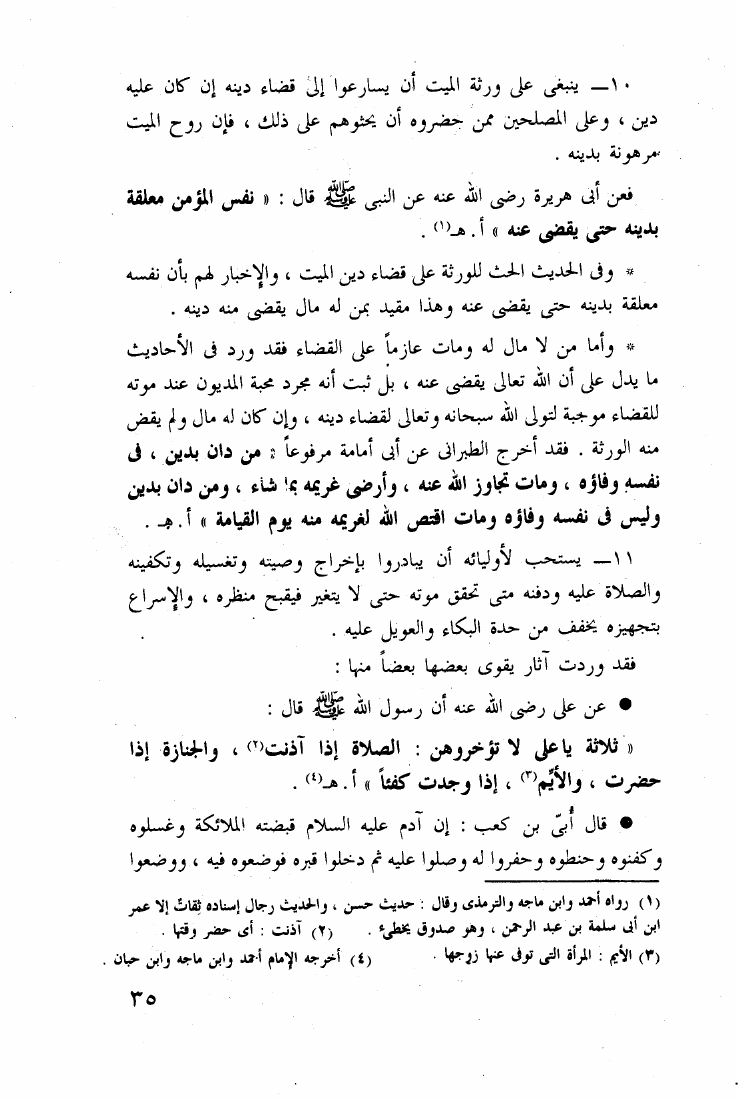 ١٠ــ ينبغى على ورثة الميت أن يسارعوا إلى قضاء دينه إن كان عليه
دين ، وعلى المصلحين ممن حضروه أن يحثوهم على ذلك ، فإن روح الميت
مرهونة بدينه .
فعن أبى هريرة رضى الله عنه عن النبى ﷺ قال : « نفس المؤمن معلقة
بدينه حتى يقضى عنه » أ . هـ(١) .
* وفى الحديث الحث للورثة على قضاء دين الميت ، والإخبار لهم بأن نفسه
معلقة بدينه حتى يقضى عنه وهذا مقيد بمن له مال يقضى منه دينه .
* وأما من لا مال له ومات عازماً على القضاء فقد ورد فى الأحاديث
ما يدل على أن الله تعالى يقضى عنه ، بل ثبت أنه مجرد محبة المديون عند موته
للقضاء موجبة لتولى الله سبحانه وتعالى لقضاء دينه ، وإن كان له مال ولم يقض
منه الورثة . فقد أخرج الطبرانى عن أبى أمامة مرفوعاً : من دان بدين ، فى
نفسه وفاؤه ، ومات تجاوز الله عنه ، وأرضى غريمه بما شاء ، ومن دان بدين
وليس فى نفسه وفاؤه ومات اقتص الله لغريمه منه يوم القيامة » أ . هـ .
١١ــ يستحب لأوليائه أن يبادروا بإخراج وصيته وتغسيله وتكفينه
والصلاة عليه ودفنه متى تحقق موته حتى لا يتغير فيقبح منظره ، والإسراع
بتجهيزه يخفف من حدة البكاء والعويل عليه .
فقد وردت آثار يقوى بعضها بعضاً منها :
● عن على رضى الله عنه أن رسول الله ﷺ قال :
« ثلاثة ياعلى لا تؤخروهن : الصلاة إذا آذنت(٢) ، والجنازة إذا
حضرت ، والأيّم(٣) ، إذا وجدت كفئاً » أ . هـ(٤) .
● قال أُبىّ بن كعب : إن آدم عليه السلام قبضته الملائكة وغسلوه
وكفنوه وحنطوه وحفروا له وصلوا عليه ثم دخلوا قبره فوضعوه فيه ، ووضعوا
(١) رواه أحمد وابن ماجه والترمذى وقال : حديث حسن ، والحديث رجال إسناده ثقات إلا عمر
ابن أبى سلمة بن عبد الرحمن ، وهو صدوق يخطىء . (٢) آذنت : أى حضر وقتها .
(٣) الأيم : المرأة التى توفى عنها زوجها . (٤) أخرجه الإمام أحمد وابن ماجه وابن حبان .
٣٥